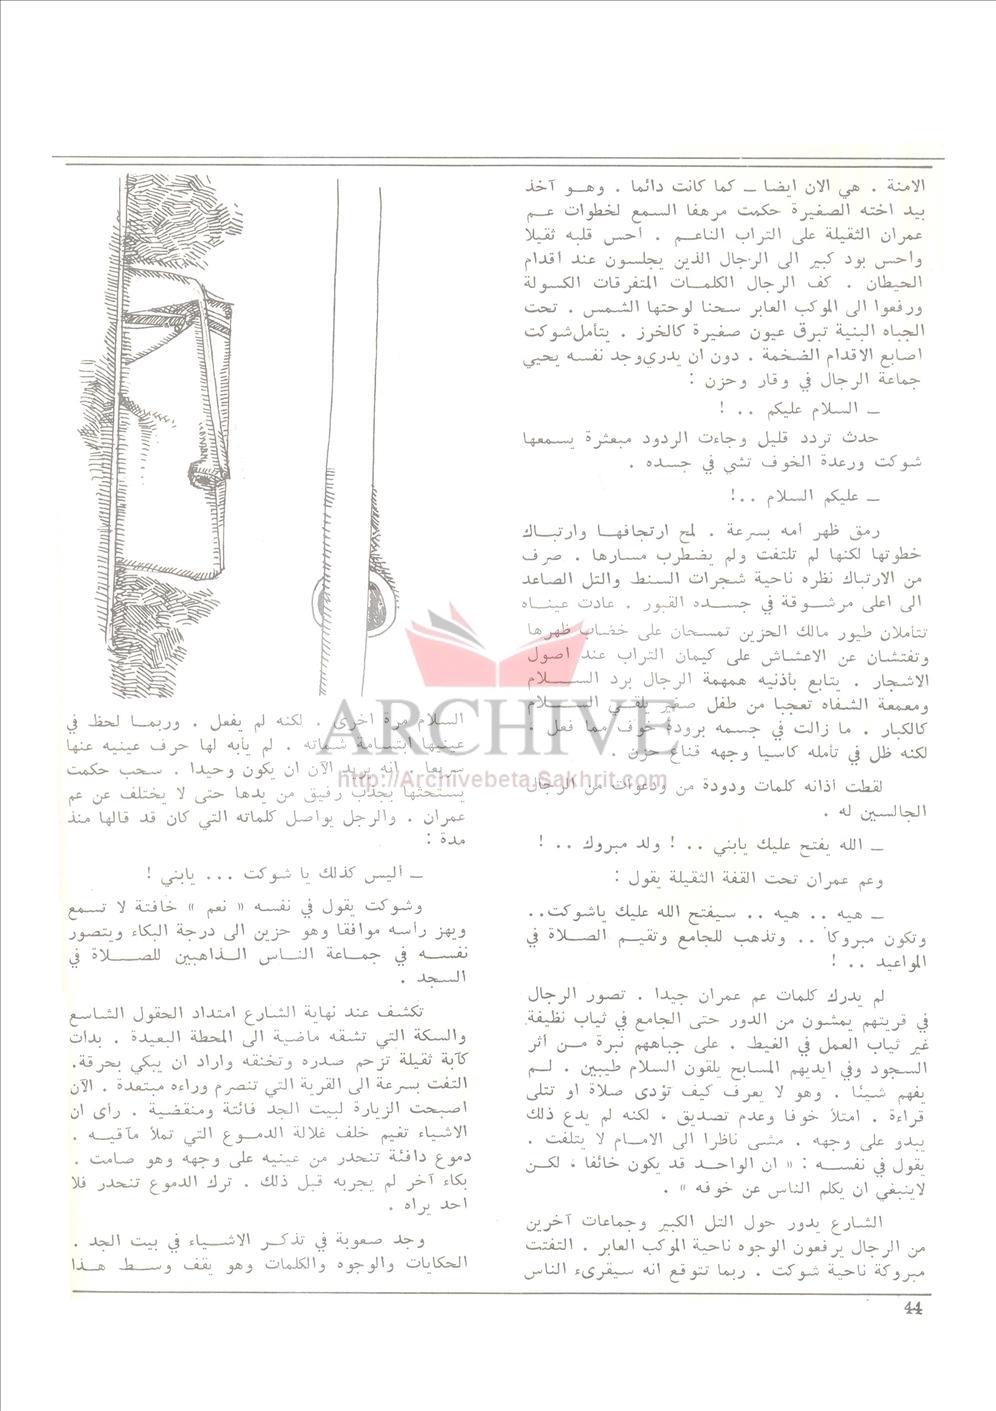 الامنة . هي الان ايضا ــ كما كانت دائما . وهــو آخذ
بيد اخته الصغيرة حكمت مرهفا السمع لخطوات عــم
عمران الثقيلة على التراب الناعــم . أحس قلبه ثقيلا
واحس بود كبير الى الرجال الذين يجلسون عند اقدام
الحيطان . كف الرجال الكلمــات المتفرقات الكسولة
ورفعوا الى الموكب العابر سحنا لوحتها الشمس . تحت
الجباه البنية تبرق عيون صغيرة كالخرز . يتأمل شوكت
اصابع الاقدام الضخمة . دون ان يدري وجد نفسه يحيي
جماعة الرجال في وقار وحزن :
ــ السلام عليكم .. !
حدث تردد قليل وجاءت الردود مبعثرة يسمعها
شوكت ورعدة الخوف تشي في جسده .
ــ عليكم السلام ..!
رمق ظهر أمه بسرعة . لمح ارتجافهــا وارتبــاك
خطوتها لكنها لم تلتفت ولم يضطرب مسارها . صرف
من الارتباك نظره ناحية شجرات السنط والتل الصاعد
الى اعلى مرشــوقة في جســده القبور . عادت عينــاه
تتأملان طيور مالك الحزين تمسحان على خضاب ظهرها
وتفتشان عن الاعشاش على كيمان التراب عند اصول
الاشجار . يتابع بأذنيه همهمة الرجال برد الســــلام
ومعمعة الشفاه تعجبا من طفل صغير يلقــي الســلام
كالكبار . ما زالت في جسمه برودة خوف مما فعل .
لكنه ظل في تأمله كاسيا وجهه قناع حزن .
لقطت آذانه كلمات ودودة من ودعوات من الرجال
الجالسين له .
ــ الله يفتح عليك يابني .. ! ولد مبروك .. !
وعم عمران تحت القفة الثقيلة يقول :
ــ هيه .. هيه .. سيفتح الله عليك ياشوكت..
وتكون مبروكا .. وتذهب للجامع وتقيــم الصــلاة في
المواعيد .. !
لم يدرك كلمات عم عمران جيدا . تصور الرجال
في قريتهم يمشون من الدور حتى الجامع في ثياب نظيفة
غير ثياب العمل في الغيط . على جباههم نبرة مــن اثر
السجود وفي ايديهم المسابح يلقون السلام طيبين . لــم
يفهم شيئا . وهو لا يعرف كيف تؤدى صلاة او تتلى
قراءة . امتلأ خوفا وعدم تصديق ، لكنه لم يدع ذلك
يبدو على وجهه . مشى ناظرا الى الامــام لا يتلفت .
يقول في نفســه : « ان الواحــد قد يكون خائفا ، لكــن
لاينبغي ان يكلم الناس عن خوفه » .
الشارع يدور حول التل الكبير وجماعات آخرين
من الرجال يرفعون الوجوه ناحية الموكب العابر . التفتت
مبروكة ناحية شوكت . ربما تتوقع انه سيقرىء الناس
السلام مرة اخرى . لكنه لم يفعل . وربمــا لحظ في
عينيها ابتسامة شماته . لم يأبه لها حرف عينيه عنها
سريعا . انه يريد الآن ان يكون وحيدا . سحب حكمت
يستحثها بجذب رفيق من يدها حتى لا يختلف عن عم
عمران . والرجل يواصل كلماته التي كان قد قالها منذ
مدة :
ــ أليس كذلك يا شوكت ... يابني !
وشوكت يقول في نفسه « نعم » خافتة لا تسمع
ويهز رأسه موافقا وهو حزين الى درجة البكاء ويتصور
نفســه في جمــاعة النــاس الــذاهبين للصــلاة في
السجد .
تكشف عند نهاية الشارع امتداد الحقول الشاسع
والسكة التي تشقه ماضية الى المحطة البعيدة . بدات
كآبة ثقيلة تزحم صدره وتخنقه واراد ان يبكي بحرقة.
التفت بسرعة الى القرية التي تنصرم وراءه مبتعدة . الآن
اصبحت الزيارة لبيت الجد فائتة ومنقضية . رأى ان
الاشياء تغيم خلف غلالة الدمــوع التي تملأ مآقيــه .
دموع دافئة تنحدر من عينيه على وجهه وهو صامت .
بكاء آخر لم يجربه قبل ذلك . ترك الدموع تنحدر فلا
احد يراه .
وجد صعوبة في تذكــر الاشيــاء في بيت الجد .
الحكايات والوجوه والكلمات وهو يقف وســط هــذا
44
ARCHIVE
http://Archivebeta.Sakhrit.com